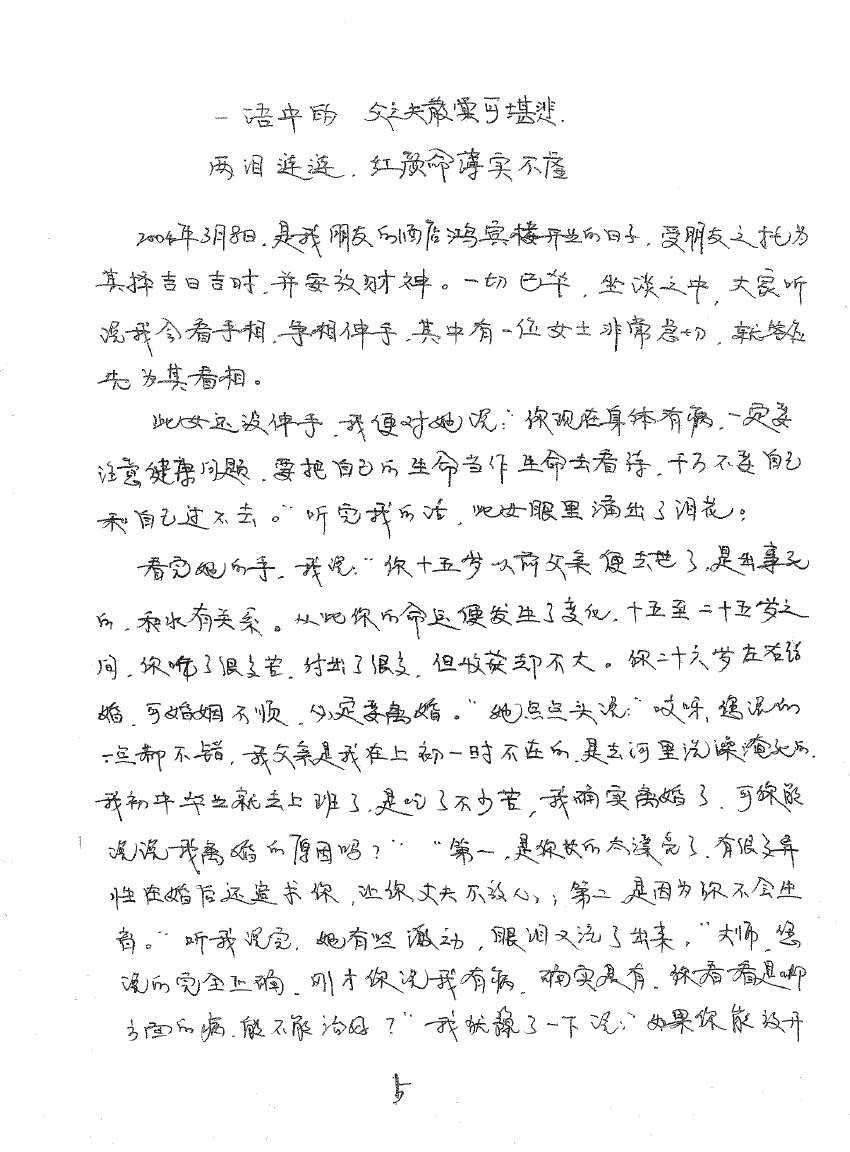 一语中的 父亡夫散实可堪悲.
两泪涟涟. 红颜命薄实不虚
2004年3月8日,是我朋友的酒店鸿宾楼开业的日子,受朋友之托为
其择吉日吉时,并安放财神。一切已毕,坐谈之中,大家听
说我会看手相,争相伸手,其中有一位女士非常急切,就答应
先为其看相。
此女还没伸手,我便对她说:“你现在身体有病,一定要
注意健康问题,要把自己的生命当作生命去看待,千万不要自己
和自己过不去。”听完我的话,此女眼里满出了泪花。
看完她的手,我说:“你十五岁以前父亲便去世了,是出事死
的,和水有关系。从此你的命运便发生了变化,十五至二十五岁之
间,你吃了很多苦,付出了很多,但收获却不大。你二十六岁左右结
婚,可婚姻不顺,必定要离婚。”她点点头说:“哎呀,您说的
一点都不错,我父亲是我在上初一时不在的,是去河里洗澡淹死的.
我初中毕业就去上班了,是吃了不少苦,我确实离婚了,可你能
说说我离婚的原因吗?”“第一,是你长的太漂亮了,有很多异
性在婚后还追求你,让你丈夫不放心;第二是因为你不会生
育。”听我说完,她有些激动,眼泪又流了出来,“大师,您
说的完全正确,刚才你说我有病,确实是有,你看看是哪
方面的病,能不能治好?”我犹豫了一下说:“如果你能放开
5